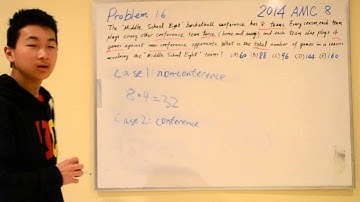 Problem 16
2014 AMC 8
The "Middle School Eight" basketball conference has 8 teams. Every season, each team
plays every other conference team twice (home and away) and each team also plays 4
games against non-conference opponents. What is the total number of games in a season
involving the "Middle School Eight" teams? (A) 60 (B) 88 (C) 96 (D) 144 (E) 160
Case 1: nonconference
8·4=32
Case 2: conference